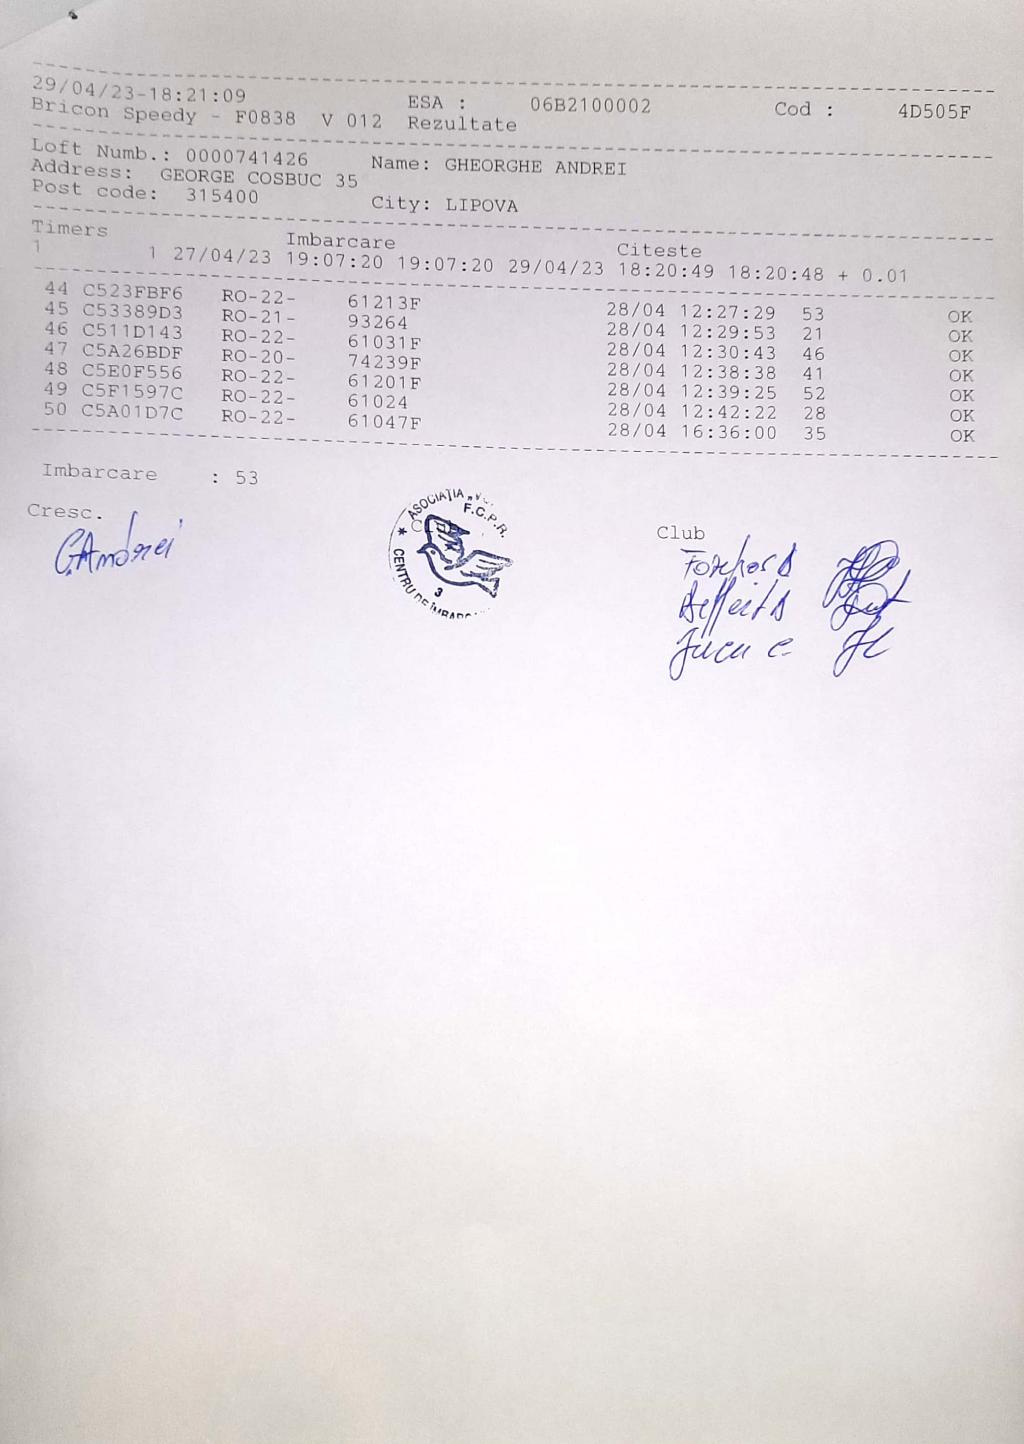 29/04/23-18:21:09 ESA : 06B2100002 Cod : 4D505F
Bricon Speedy - F0838 V 012 Rezultate
Loft Numb.: 0000741426 Name: GHEORGHE ANDREI
Address: GEORGE COSBUC 35
Post code: 315400 City: LIPOVA
Timers Imbarcare Citeste
1 1 27/04/23 19:07:20 19:07:20 29/04/23 18:20:49 18:20:48 + 0.01
44 C523FBF6 RO-22- 61213F 28/04 12:27:29 53 OK
45 C53389D3 RO-21- 93264 28/04 12:29:53 21 OK
46 C511D143 RO-22- 61031F 28/04 12:30:43 46 OK
47 C5A26BDF RO-20- 74239F 28/04 12:38:38 41 OK
48 C5E0F556 RO-22- 61201F 28/04 12:39:25 52 OK
49 C5F1597C RO-22- 61024 28/04 12:42:22 28 OK
50 C5A01D7C RO-22- 61047F 28/04 16:36:00 35 OK
Imbarcare : 53
Cresc.
G.Andrei
ASOCIAȚIA
F.C.P.R.
CENTRU DE
3
Club